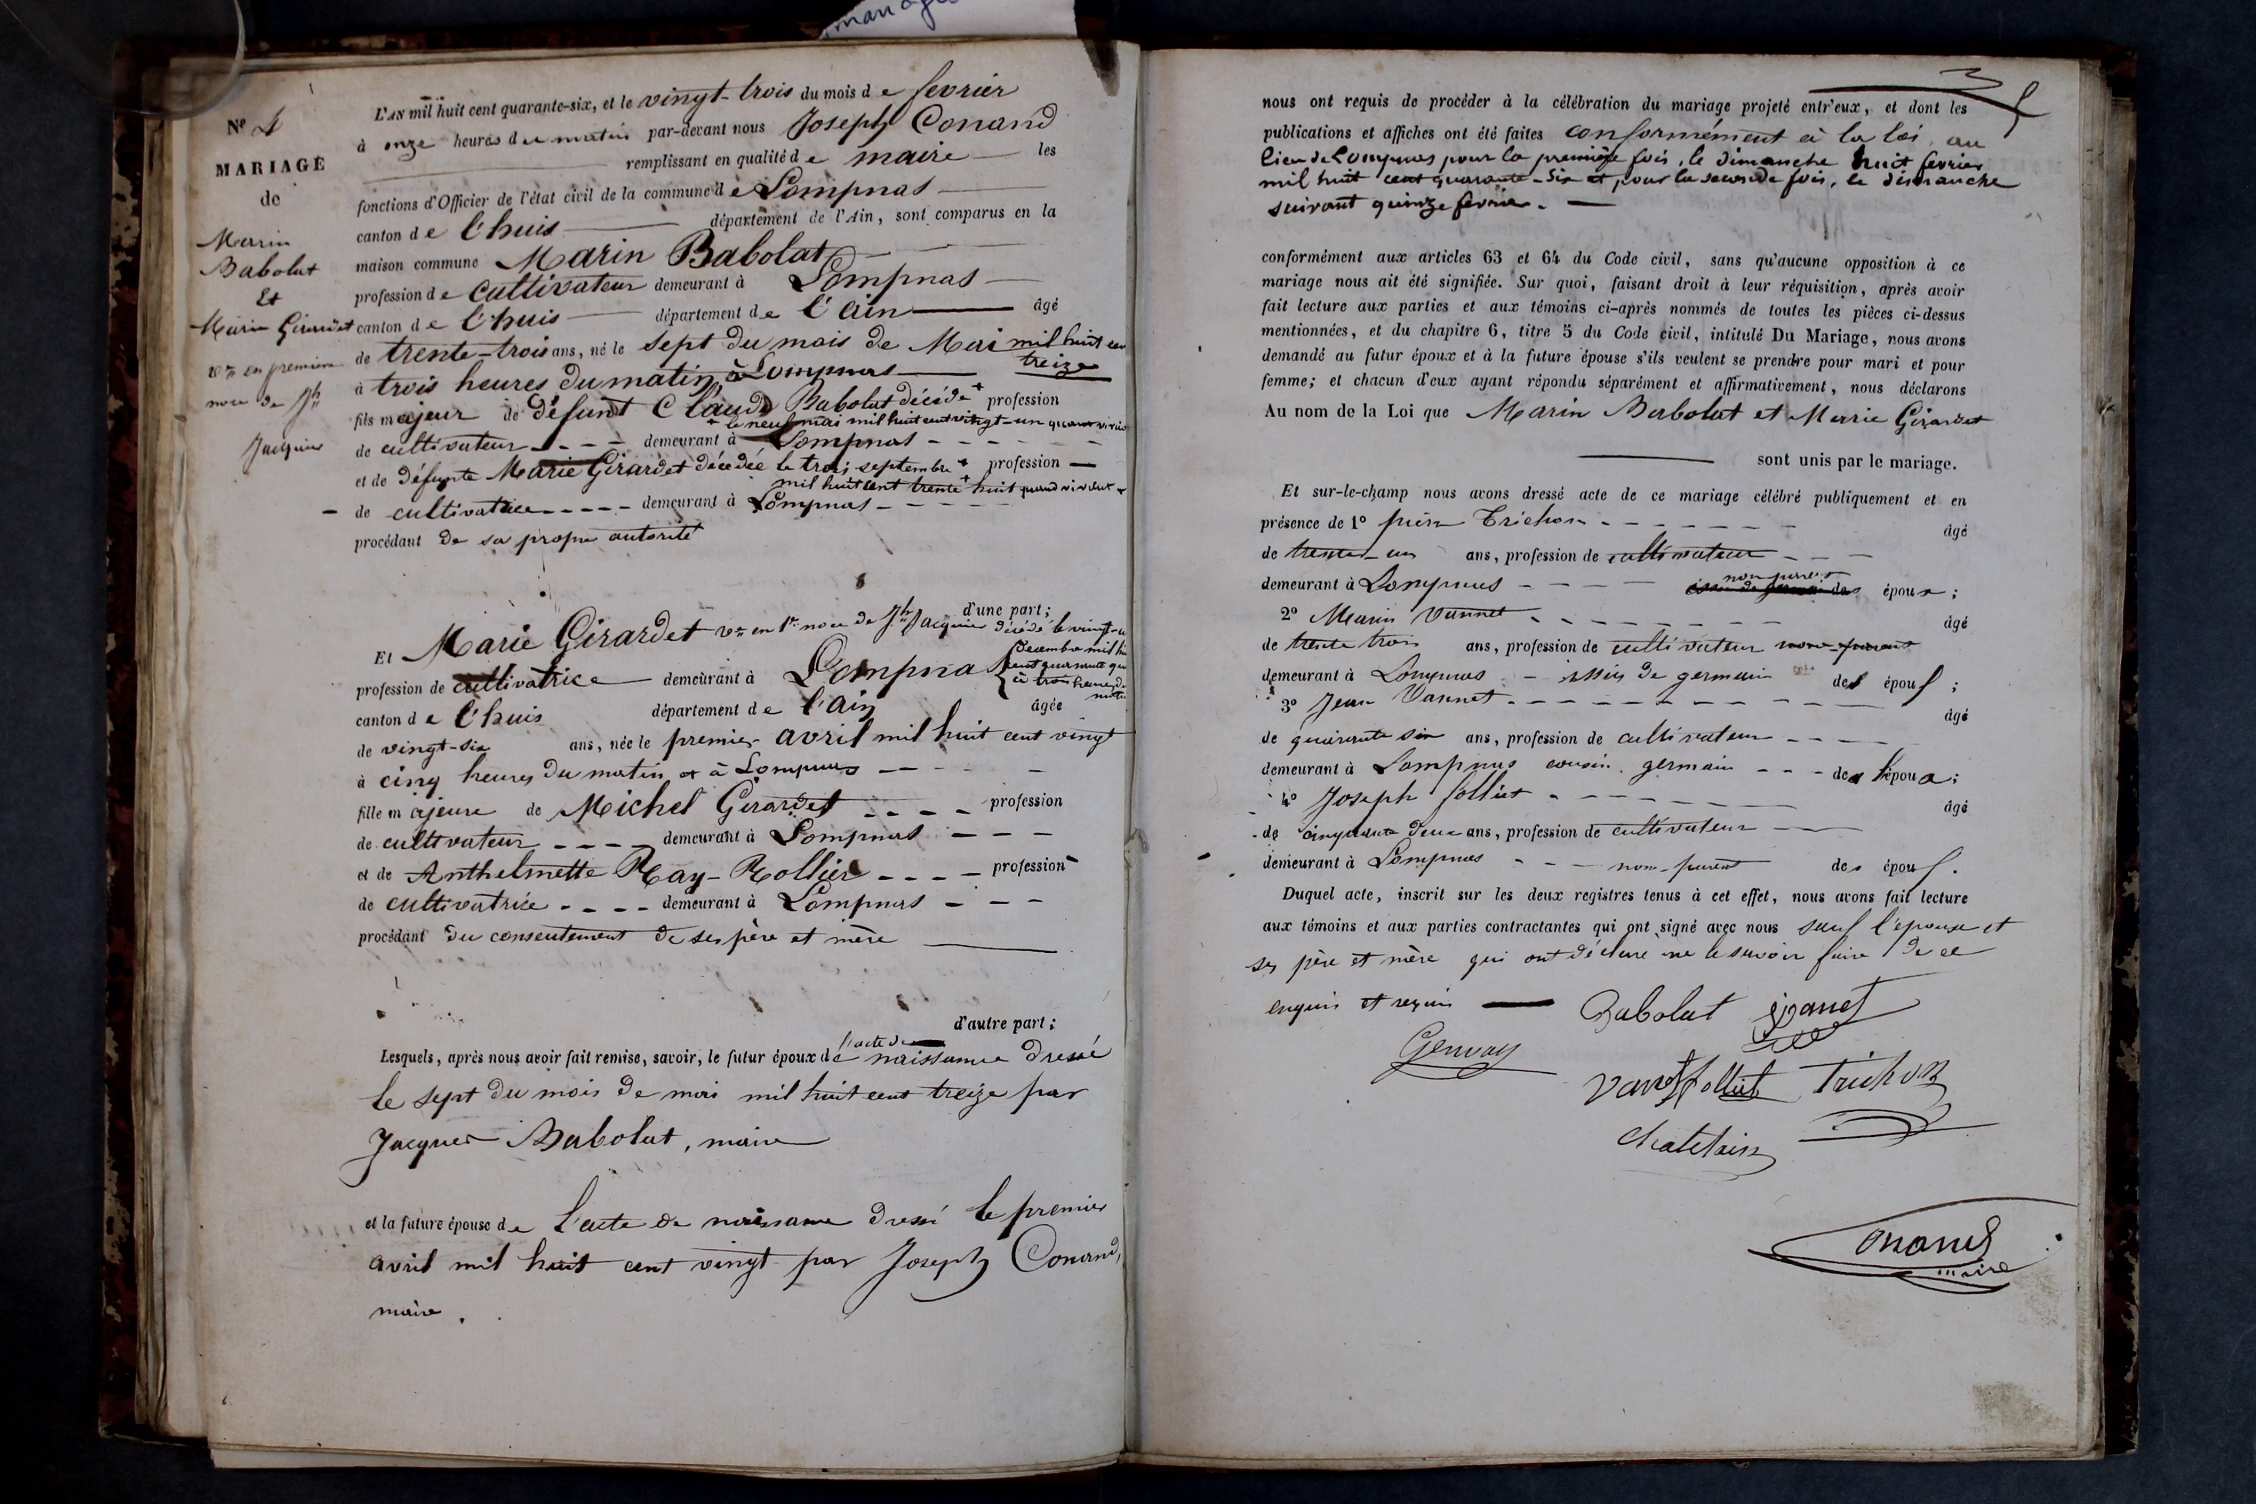 mariages
Nº 4
MARIAGE
de
Marin
Babolat
Et
Marie Girardet
vve en première
noce de Jh
Jacquier
L'AN mil huit cent quarante-six, et le vingt-trois du mois de fevrier
à onze heures du matin par-devant nous Joseph Conand
remplissant en qualité de maire les
fonctions d'Officier de l'état civil de la commune de Lompnas
canton de l'huis département de l'Ain, sont comparus en la
maison commune Marin Babolat
profession de Cultivateur demeurant à Lompnas
canton de l'huis département de l'ain âgé
de trente-trois ans, né le sept du mois de Mai mil huit cen
treize
à trois heures du matin à Lompnas
fils majeur de défunt Claude Babolat décédé + profession
+ le neuf mai mil huit cent vingt-un quand vivait
de cultivateur demeurant à Lompnas
et de défunte Marie Girardet décédée le trois septembre + profession
mil huit cent trente + huit quand vivait +
de cultivatrice demeurant à Lompnas
procédant de sa propre autorité
d'une part;
Et Marie Girardet vve en 1re noce de Jh Jacquier décédé le vingt-u
decembre mil hu
cent quarante qu
à trois heures du
matin
profession de cultivatrice demeurant à Lompnas
canton de l'huis département de l'Ain âgée
de vingt-six ans, née le premier avril mil huit cent vingt
à cinq heures du matin et à Lompnas
fille majeure de Michel Girardet profession
de cultivateur demeurant à Lompnas
et de Anthelmette Ray-Rollier profession
de cultivatrice demeurant à Lompnas
procédant du consentement de ses père et mère
d'autre part;
l'acte de
Lesquels, après nous avoir fait remise, savoir, le futur époux de naissance dressé
le sept du mois de mai mil huit cent treize par
Jacques Babolat, maire
et la future épouse de l'acte de naissance dressé le premier
avril mil huit cent vingt par Joseph Conand,
maire.
3
nous ont requis de procéder à la célébration du mariage projeté entr'eux, et dont les
publications et affiches ont été faites conformément à la loi au
lieu de Lompnas pour la première fois, le dimanche huit fevrier
mil huit cent quarante-six et pour la seconde fois, le dimanche
suivant quinze fevrier.
conformément aux articles 63 et 64 du Code civil, sans qu'aucune opposition à ce
mariage nous ait été signifiée. Sur quoi, faisant droit à leur réquisition, après avoir
fait lecture aux parties et aux témoins ci-après nommés de toutes les pièces ci-dessus
mentionnées, et du chapitre 6, titre 5 du Code civil, intitulé Du Mariage, nous avons
demandé au futur époux et à la future épouse s'ils veulent se prendre pour mari et pour
femme; et chacun d'eux ayant répondu séparément et affirmativement, nous déclarons
Au nom de la Loi que Marin Babolat et Marie Girardet
sont unis par le mariage.
Et sur-le-champ nous avons dressé acte de ce mariage célébré publiquement et en
présence de 1º Trichon âgé
de trente-un ans, profession de cultivateur
non parent
demeurant à Lompnas issu de germain des époux;
2º Marin Vannet âgé
de trente trois ans, profession de cultivateur non-parent
demeurant à Lompnas issus de germain des épou ;
3º Jean Vannet âgé
de quarante six ans, profession de cultivateur
demeurant à Lompnas cousin germain de l'époux;
4º Joseph Jolliet âgé
de cinquante deux ans, profession de cultivateur
demeurant à Lompnas non-parent des époux.
Duquel acte, inscrit sur les deux registres tenus à cet effet, nous avons fait lecture
aux témoins et aux parties contractantes qui ont signé avec nous sauf l'épouse et
ses père et mère qui ont déclaré ne le savoir faire de ce
enquis et requis
Babolat Vanet
Gervay
Vanet Jolliet Trichon
Chatelain
Conand
maire